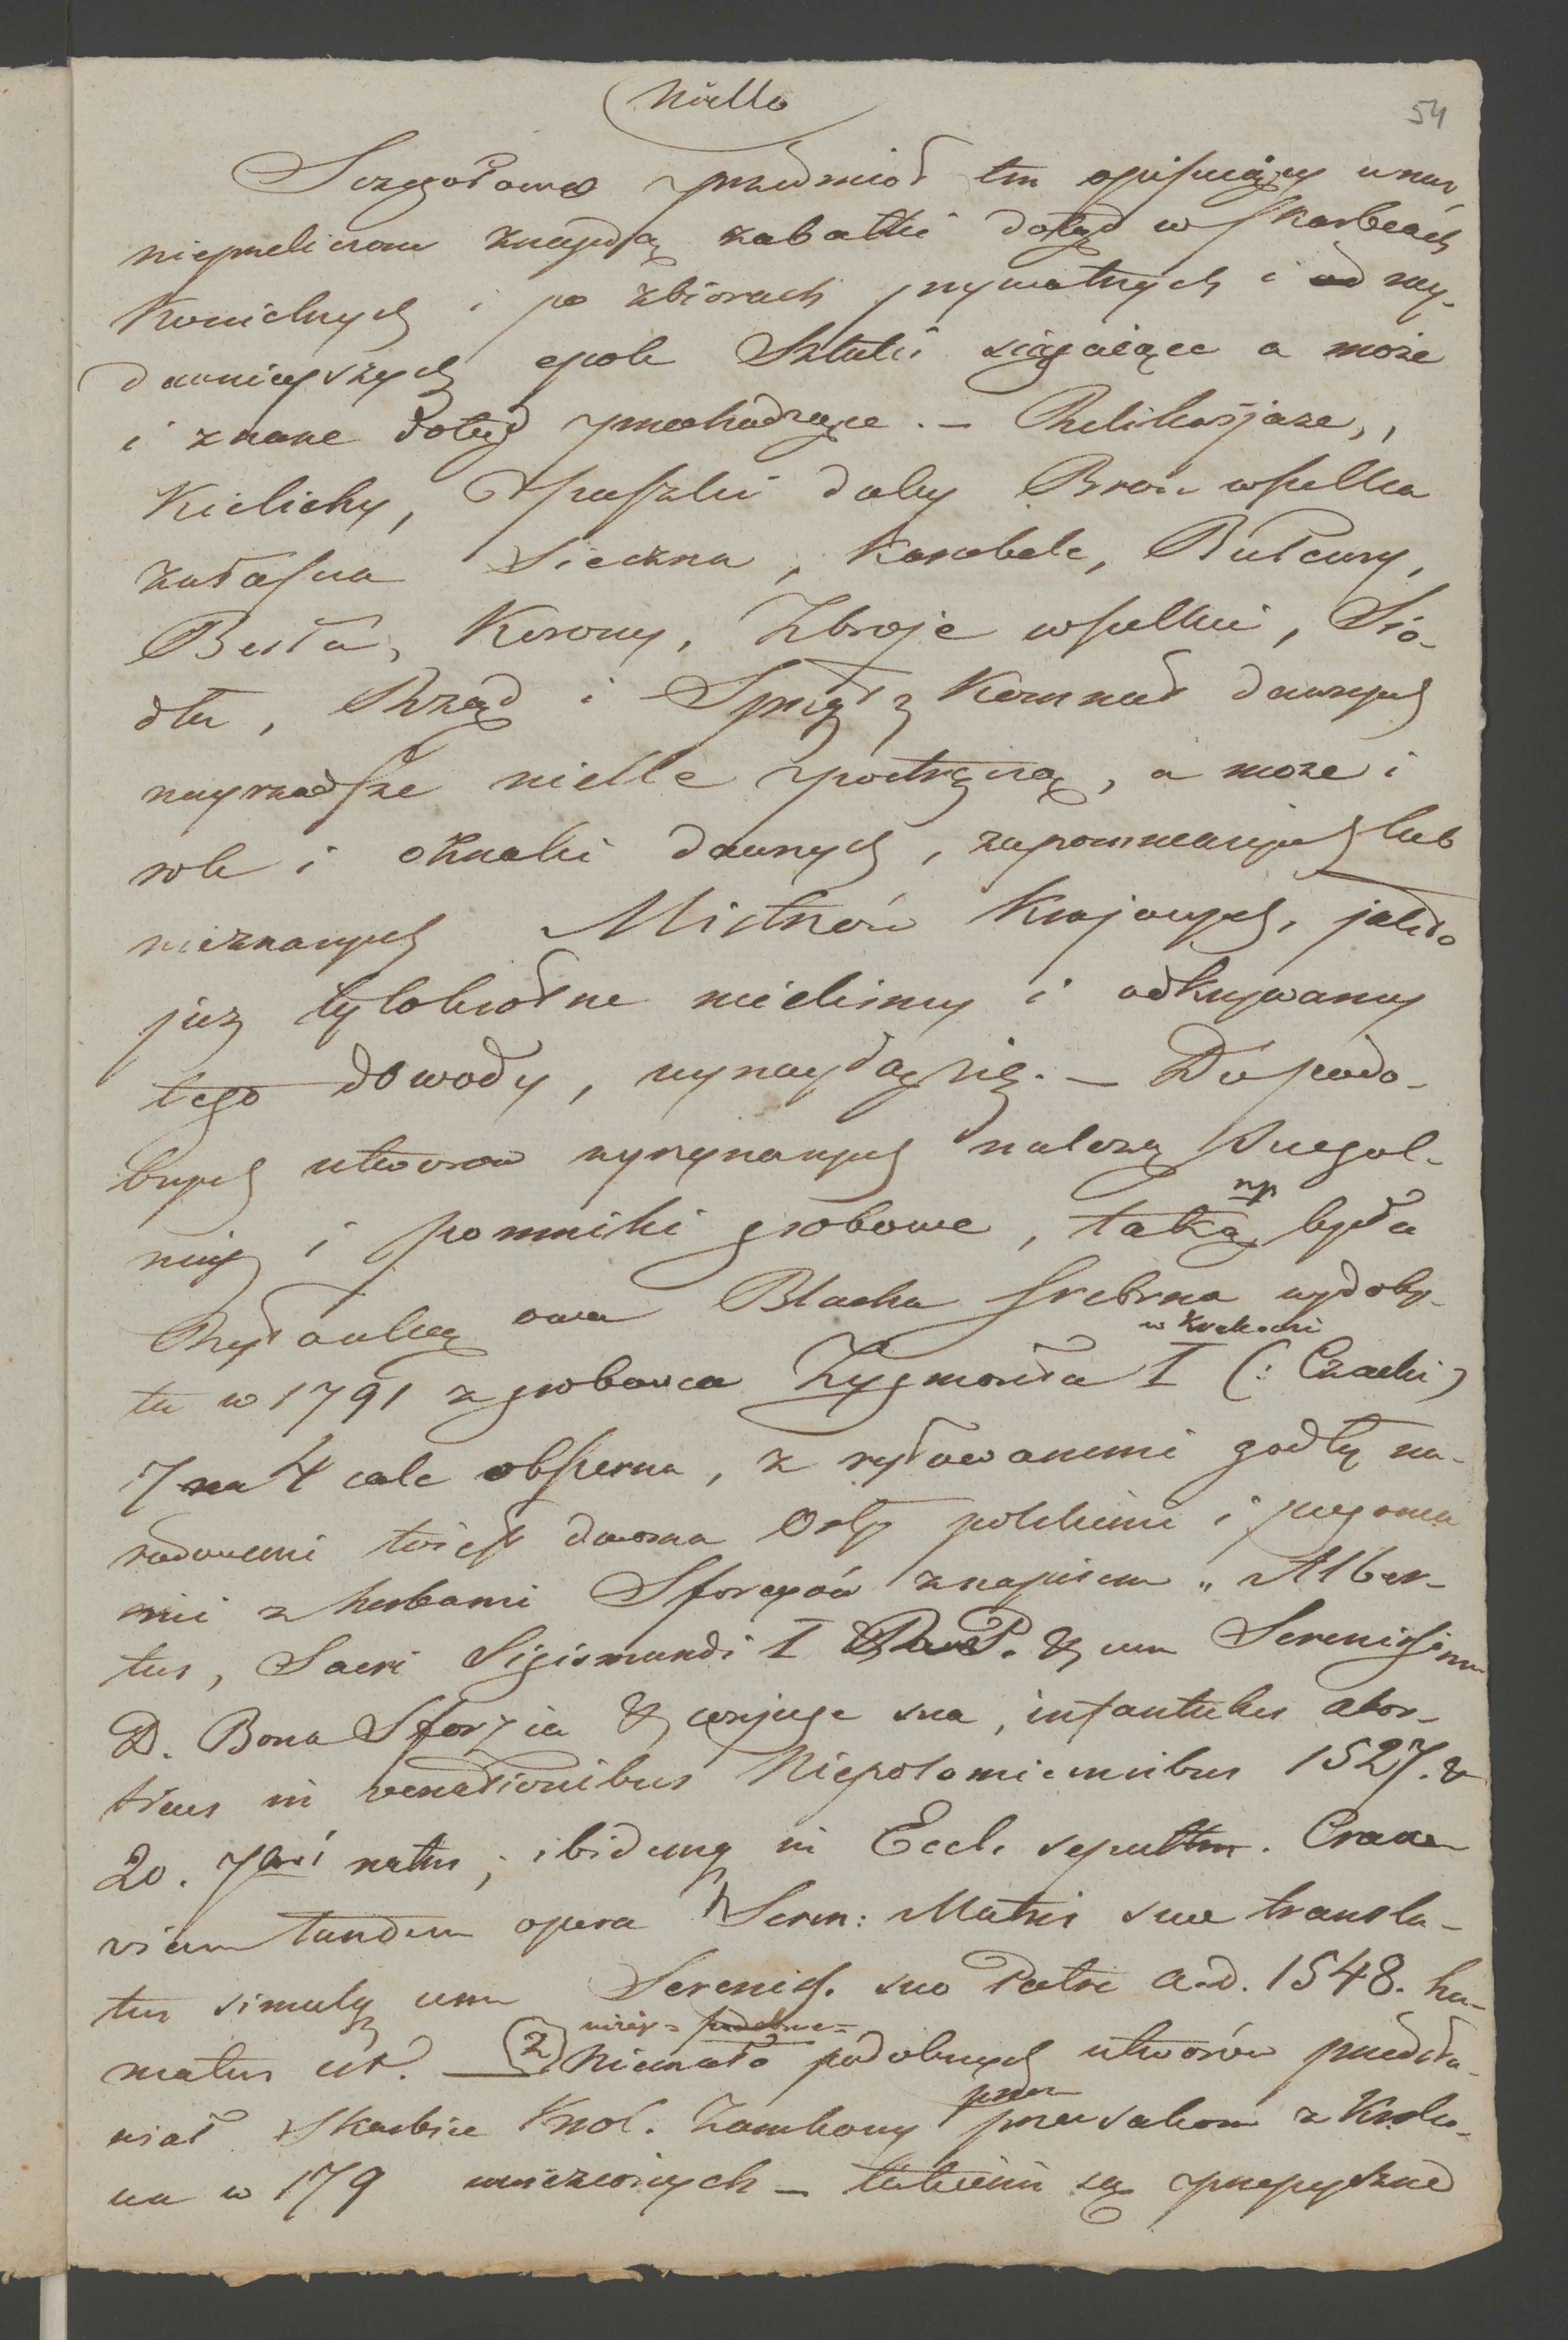 Niello
54
Szczegołowo przedmiot ten opisujący u nas
nieprzeliczone znajdą zabatki dotąd w skarbcach
Koscielnych i po zbiorach prywatnych i od nay-
dawnieyszych epok Sztuki sięgaiące a może
i znane dotąd przechodzące. — Relikwjarze,,
Kielichy, Puszki daley Bron wszelka
zwłaszcza Sieczna, Karabele, Buławy,
Berła, Korony, Zbroje wszelkie, Sio-
dła, Rząd i Sprzęt z Komnat dawnych
nayrzadsze nielle postręczą, a może i
rok i znaki dawnych, zapomnianych lub
nieznanych Mistrzów Krajowych, jakto
już tylokrotne mielismy i odkrywamy
tego dowody, wynaydą się. — Do podo-
bnych utworow wyrzynanych należą szczegol-
niey i pomniki grobowe, taką np była
Rytowaną owa Blacha srebrna wydoby-
ta w 1791 z grobowca Zygmonta I w Krakowie (: Czacki)
7 na 4 cale obszerna, z rytowanemi godły na-
rodowemi toiest dwoma Orły polskiemi i pogonia
mi z herbami Sforcyów z napisem „ Alber-
tus, Sacri Sigismundi I P. & cum Serenissima
D. Bona Sforzia & conjuge sua, infantulus abor-
tivus in venationibus Niepolomicensibus 1527. &
20. 7bris natus; ibidemq in Eccl. sepultus. Craco
viam tandem opera Seren: Matris suae transla-
tus simulq cum Sereniss. suo Patre A.D. 1548. hu-
matus est. — (2) Niemało podobnych utworów przedsta-
wiał Skarbiec Krol. Zamkowy przez prusakow z Krako-
wa w 179 wywiezionych — takiemi są przepyszne